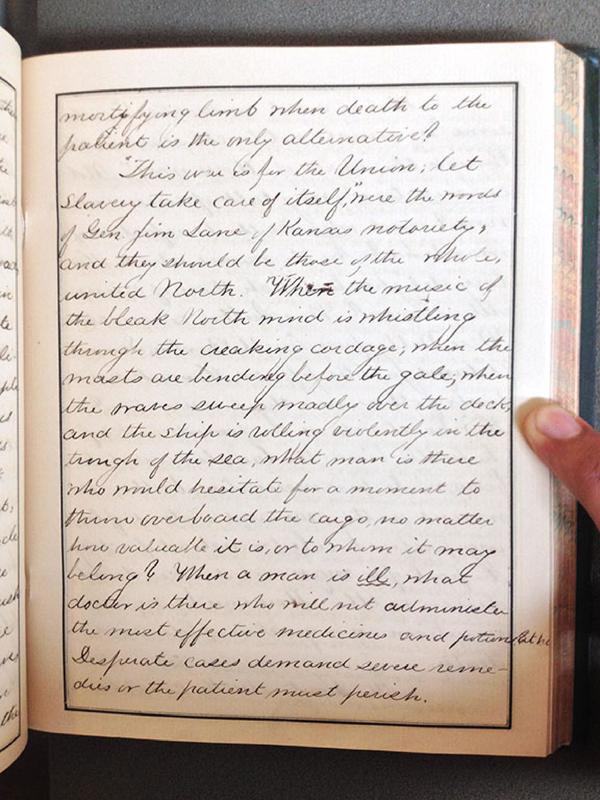 mortifying limb when death to the
patient is the only alternative?
"This war is for the Union; let
Slavery take care of itself," were the words
of Gen Jim Lane of Kansas notoriety,
and they should be those of the whole,
united North. When the music of
the bleak North wind is whistling
through the creaking cordage; when the
masts are bending before the gale; when
the waves sweep madly over the deck,
and the ship is rolling violently in the
trough of the sea, what man is there
who would hesitate for a moment to
throw overboard the cargo, no matter
how valuable it is, or to whom it may
belong? When a man is ill, what
doctor is there who will not administer
the most effective medicines and potions
Desperate cases demand severe reme-
dies or the patient must perish.